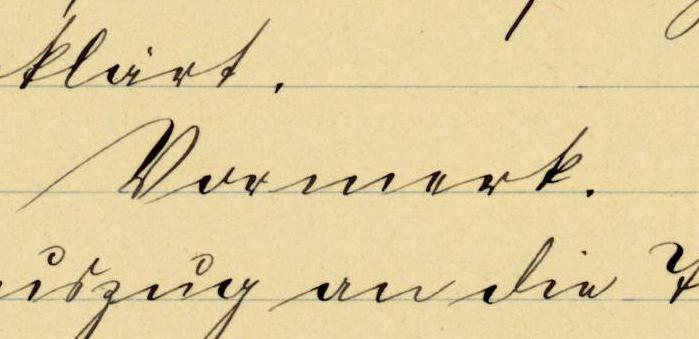 klärt.
Vormerk.
uszug an die